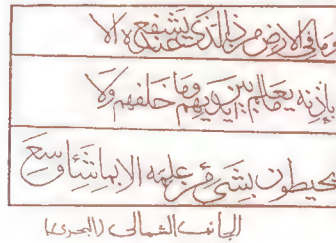 وما في الارض من ذا الذي يشفع عنده الا
باذنه يعلم ما بين ايديهم وما خلفهم ولا
يحيطون بشيء من علمه الا بما شاء وسع
الجانب الشمالي (البحري)